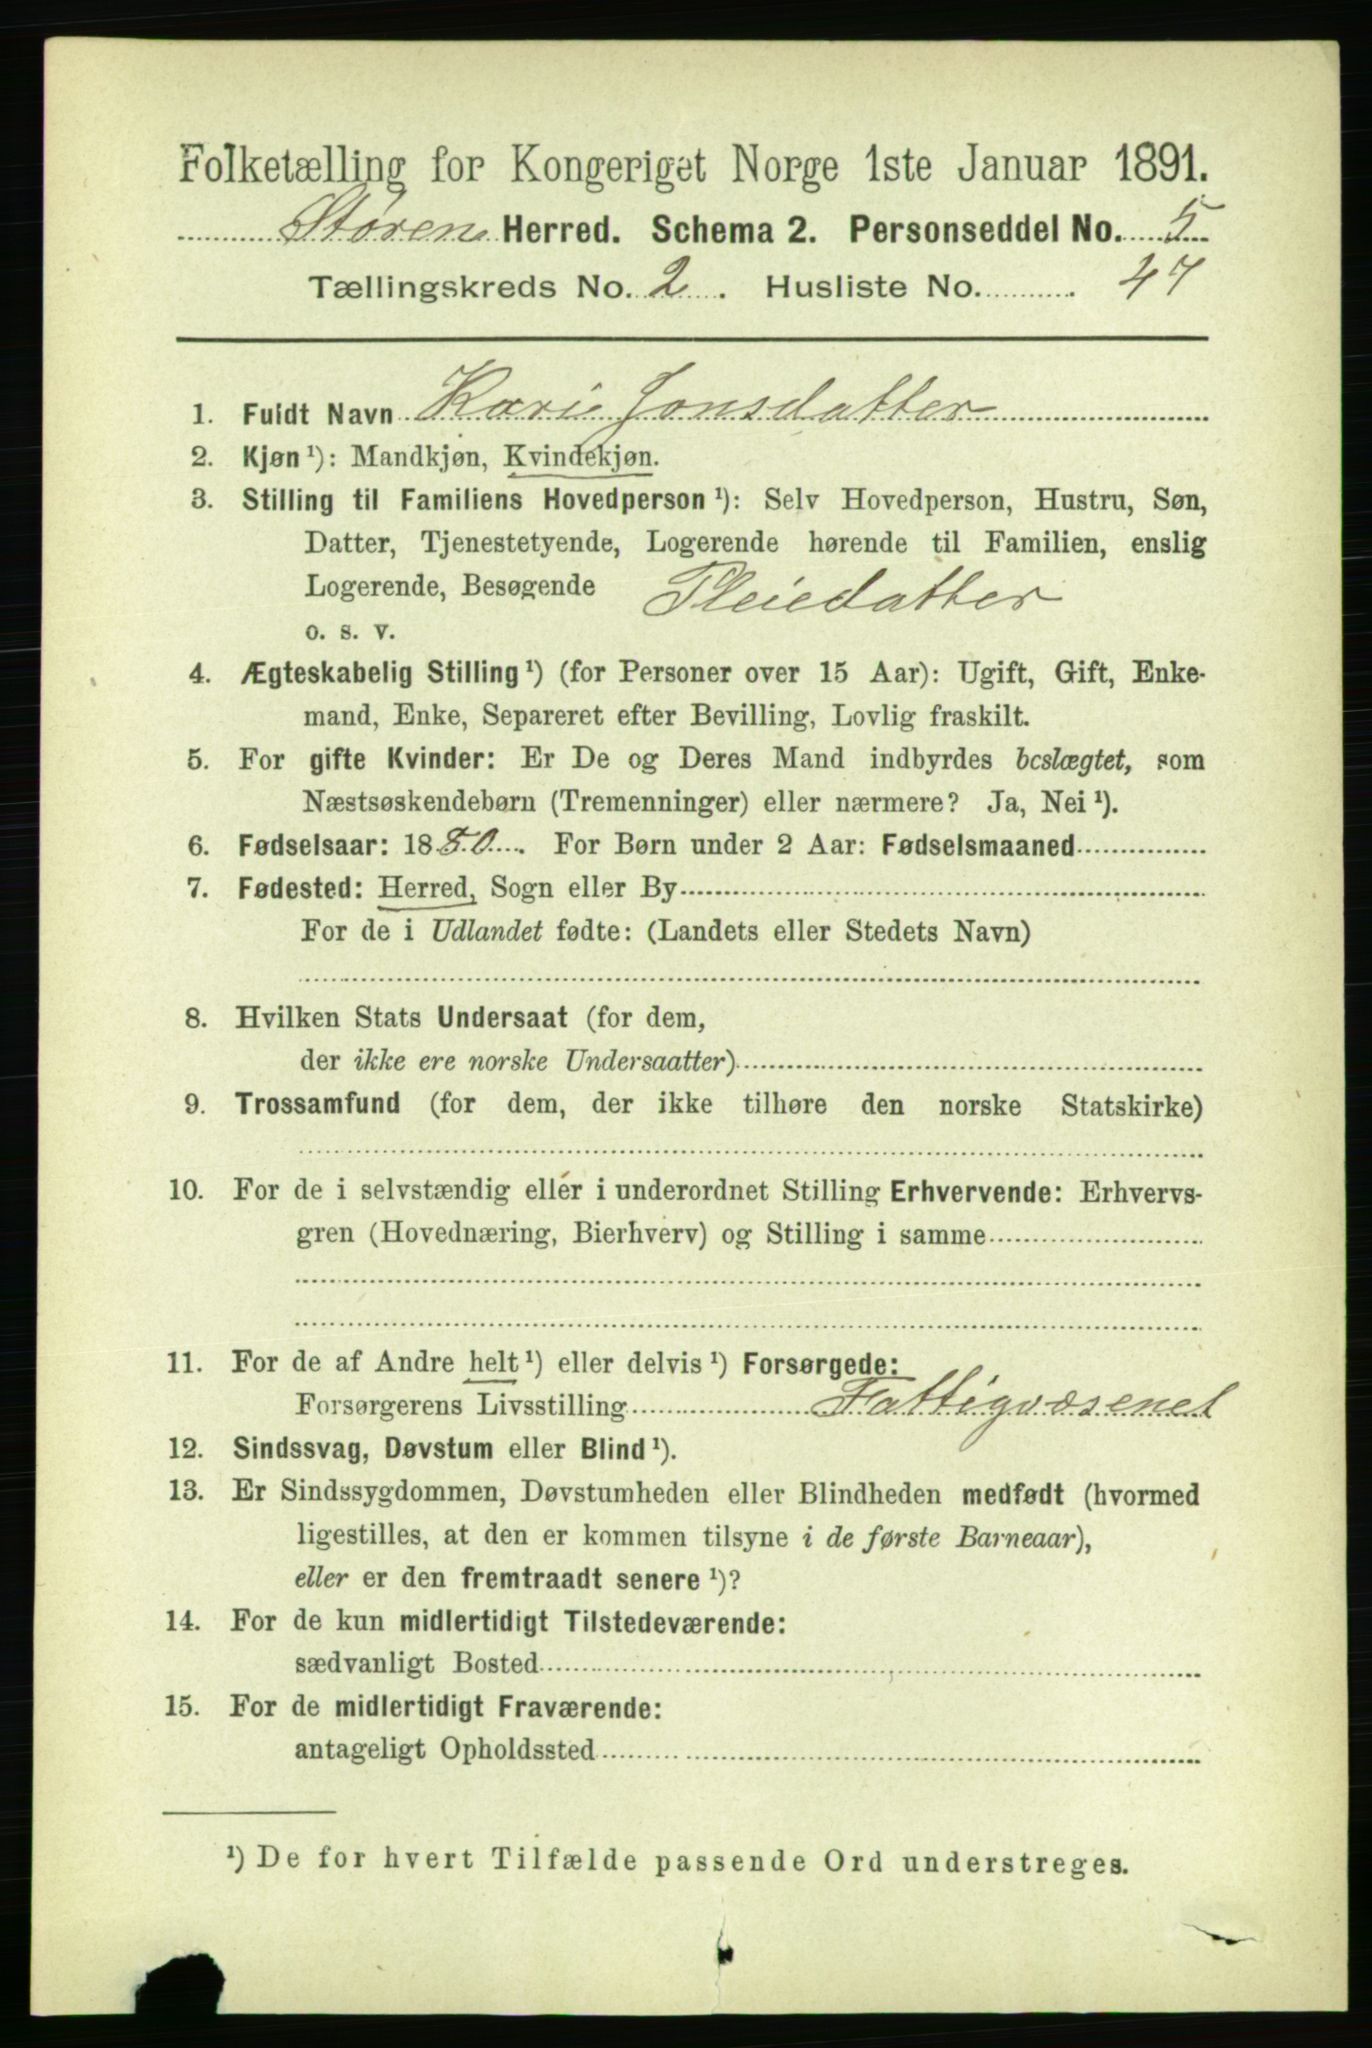 Folketælling for Kongeriget Norge 1ste Januar 1891.
Støren Herred. Schema 2. Personseddel No. 5
Tællingskreds No. 2. Husliste No. 47
1. Fuldt Navn Kari Jonsdatter
2. Kjøn¹): Mandkjøn, Kvindekjøn.
3. Stilling til Familiens Hovedperson¹): Selv Hovedperson, Hustru, Søn,
Datter, Tjenestetyende, Logerende hørende til Familien, enslig
Logerende, Besøgende Pleiedatter
o. s. v.
4. Ægteskabelig Stilling¹) (for Personer over 15 Aar): Ugift, Gift, Enke-
mand, Enke, Separeret efter Bevilling, Lovlig fraskilt.
5. For gifte Kvinder: Er De og Deres Mand indbyrdes beslægtet, som
Næstsøskendebørn (Tremenninger) eller nærmere? Ja, Nei¹).
6. Fødselsaar: 1880. For Børn under 2 Aar: Fødselsmaaned
7. Fødested: Herred, Sogn eller By
For de i Udlandet fødte: (Landets eller Stedets Navn)
8. Hvilken Stats Undersaat (for dem,
der ikke ere norske Undersaatter)
9. Trossamfund (for dem, der ikke tilhøre den norske Statskirke)
10. For de i selvstændig eller i underordnet Stilling Erhvervende: Erhvervs-
gren (Hovednæring, Bierhverv) og Stilling i samme
11. For de af Andre helt¹) eller delvis¹) Forsørgede:
Forsørgerens Livsstilling Fattigvæsenet
12. Sindssvag, Døvstum eller Blind¹).
13. Er Sindssygdommen, Døvstumheden eller Blindheden medfødt (hvormed
ligestilles, at den er kommen tilsyne i de første Barneaar),
eller er den fremtraadt senere¹)?
14. For de kun midlertidigt Tilstedeværende:
sædvanligt Bosted
15. For de midlertidigt Fraværende:
antageligt Opholdssted
¹) De for hvert Tilfælde passende Ord understreges.